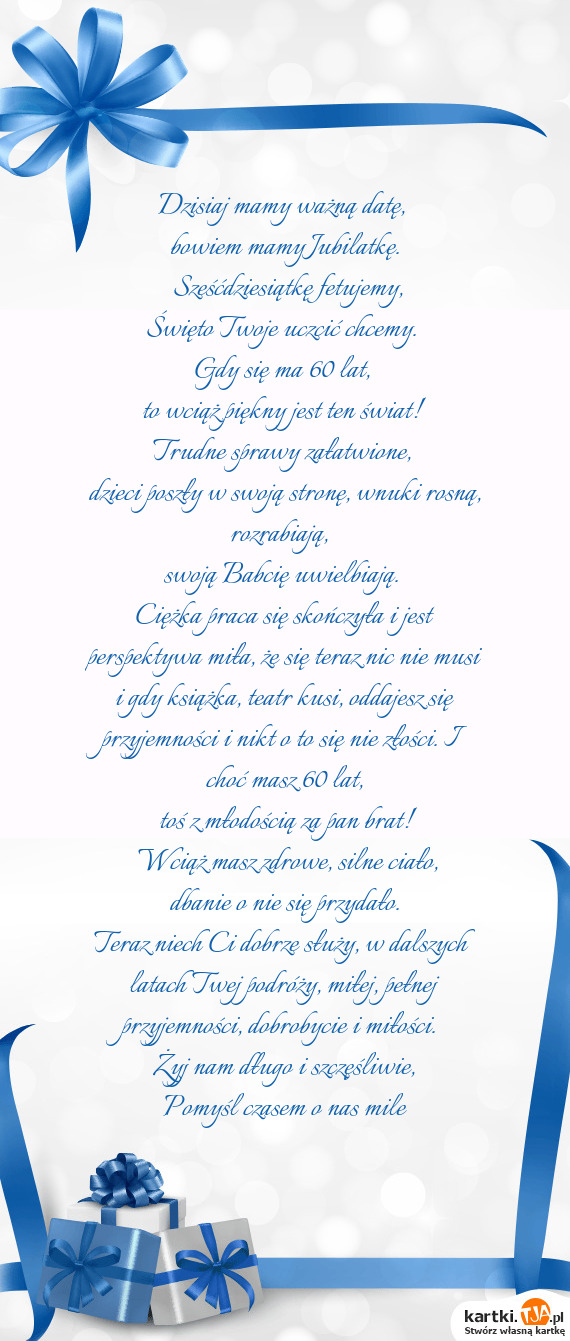 Dzisiaj mamy ważną datę,
bowiem mamy Jubilatkę.
Sześćdziesiątkę fetujemy,
Święto Twoje uczcić chcemy.
Gdy się ma 60 lat,
to wciąż piękny jest ten świat!
Trudne sprawy załatwione,
dzieci poszły w swoją stronę, wnuki rosną,
rozrabiają,
swoją Babcię uwielbiają.
Ciężka praca się skończyła i jest
perspektywa miła, że się teraz nic nie musi
i gdy książka, teatr kusi, oddajesz się
przyjemności i nikt o to się nie złości. I
choć masz 60 lat,
toś z młodością za pan brat!
Wciąż masz zdrowe, silne ciało,
dbanie o nie się przydało.
Teraz niech Ci dobrze służy, w dalszych
latach Twej podróży, miłej, pełnej
przyjemności, dobrobycie i miłości.
Żyj nam długo i szczęśliwie,
Pomyśl czasem o nas mile
kartki.TJA.pl
Stwórz własną kartkę